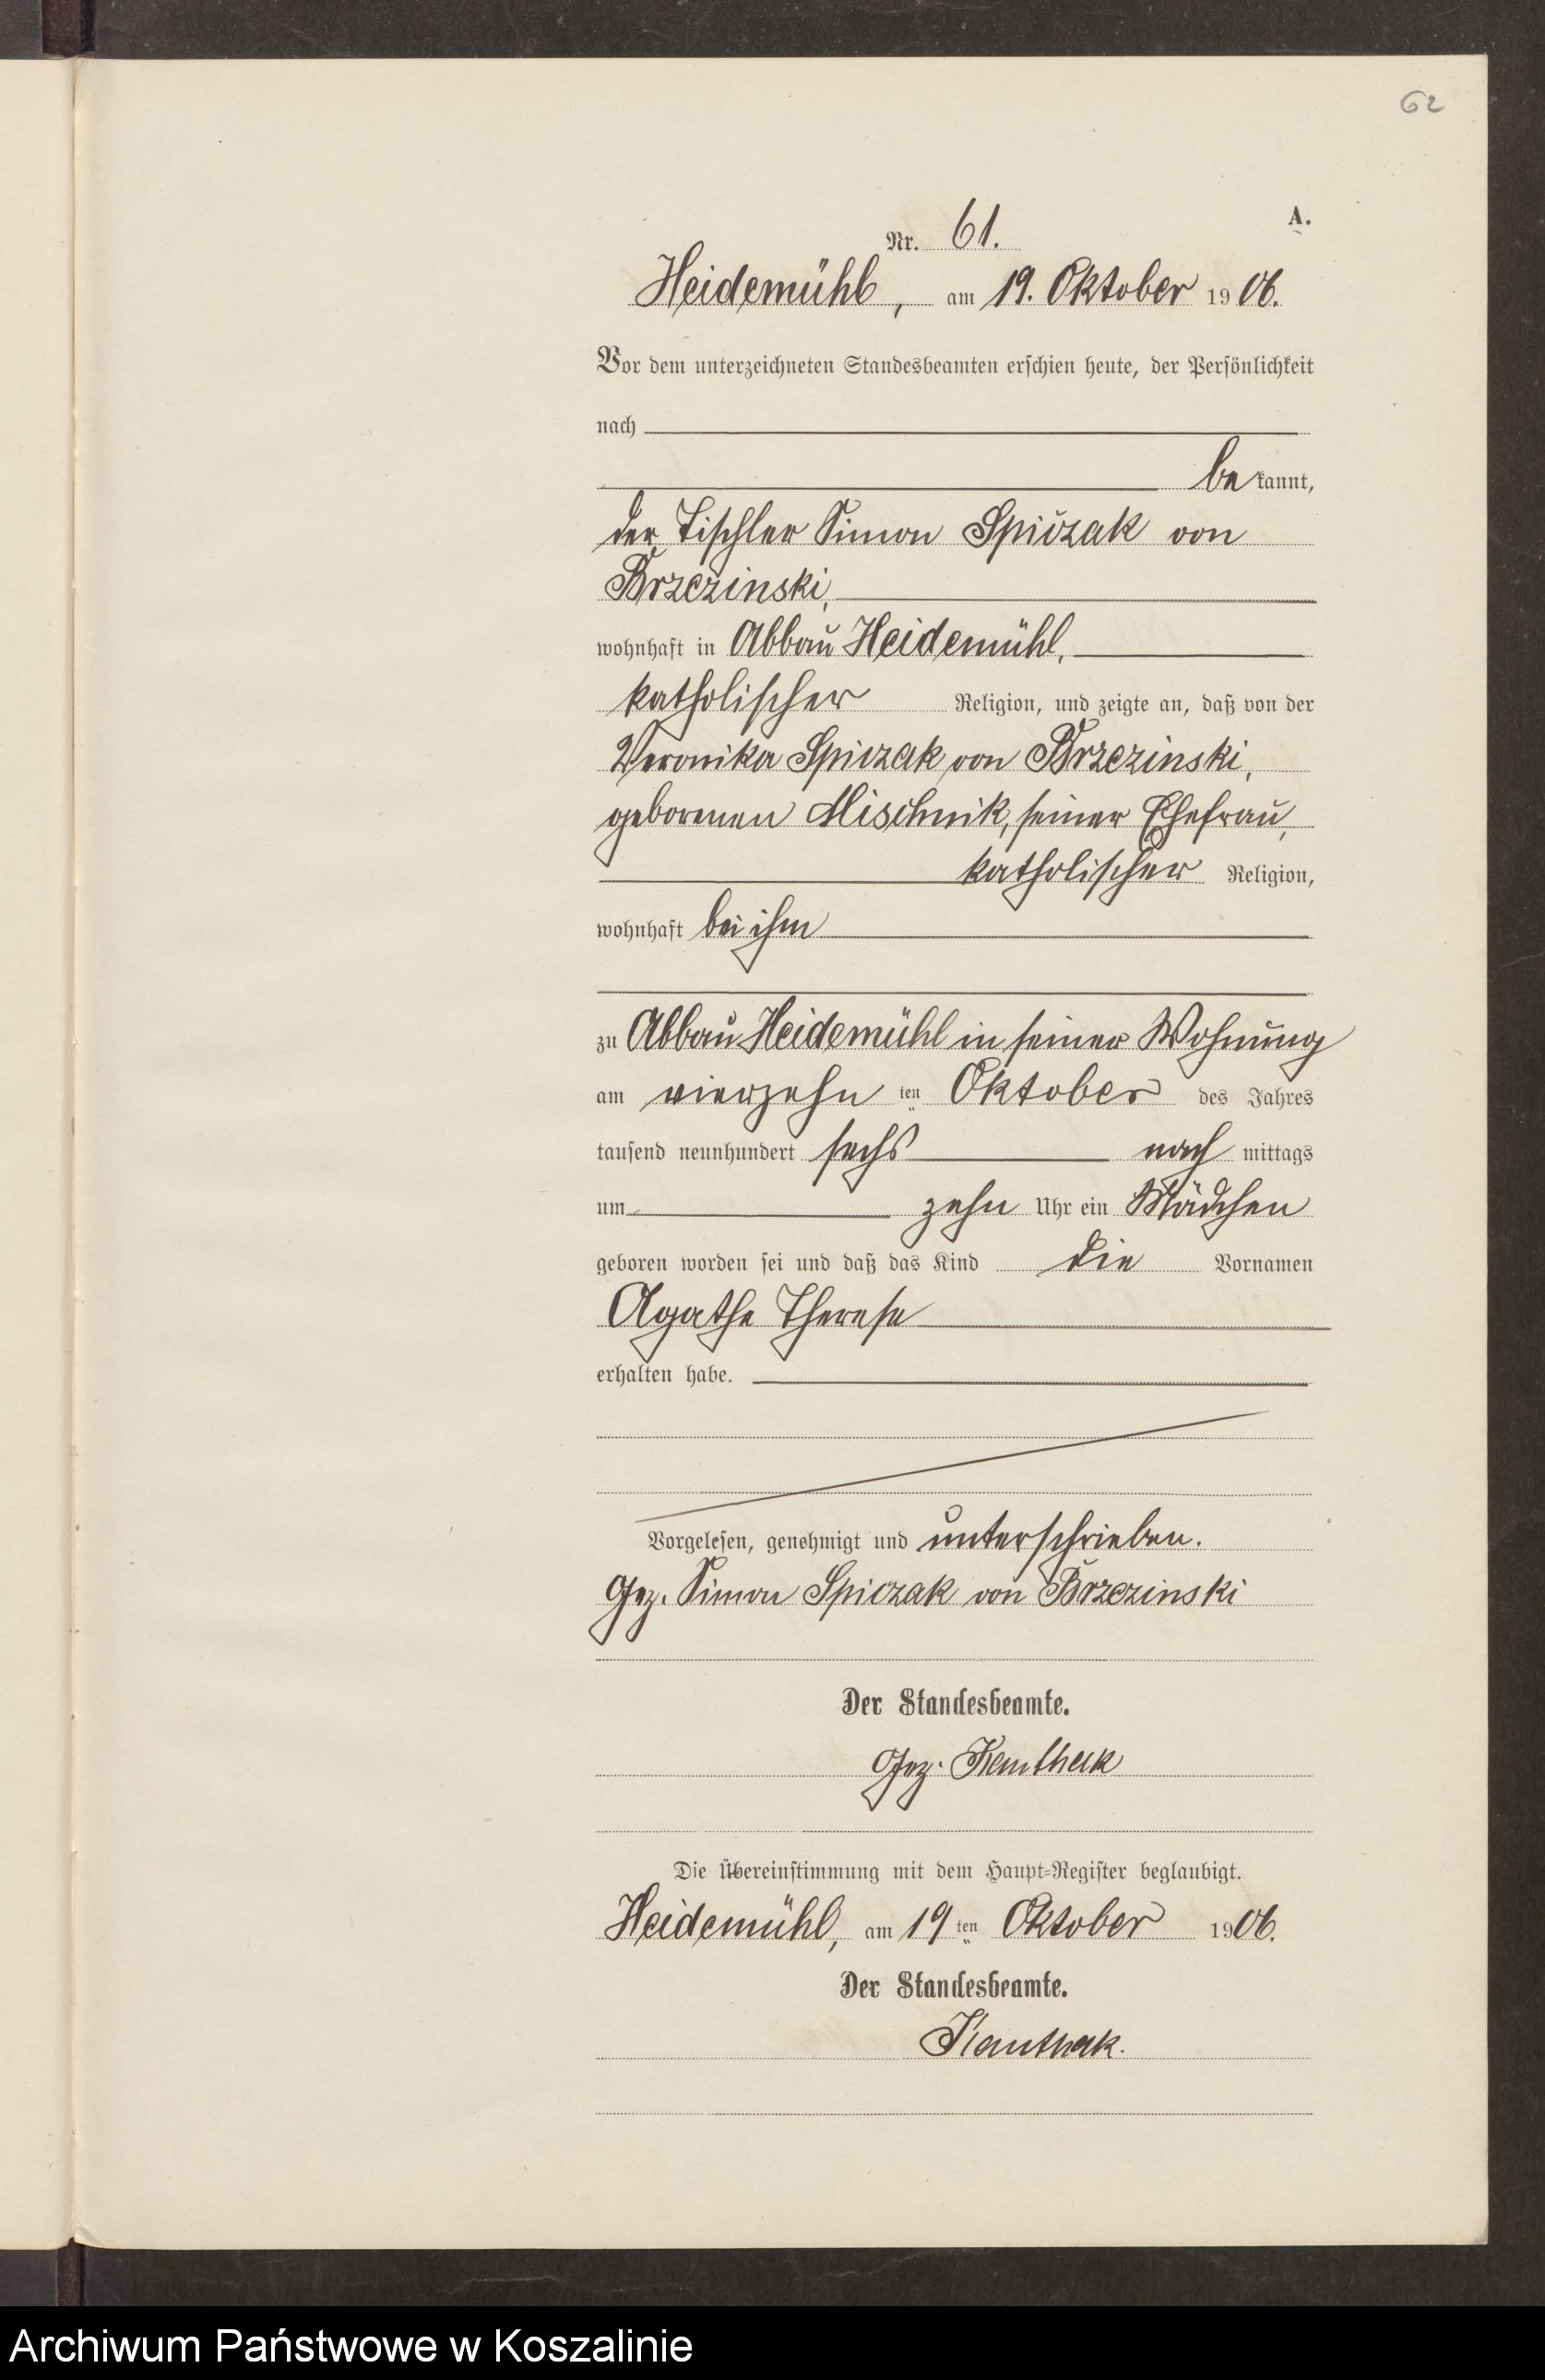 62
A.
Nr. 61.
Heidemühl, am 19. Oktober 1906.
Vor dem unterzeichneten Standesbeamten erschien heute, der Persönlichkeit
nach
bekannt,
der Tischler Simon Spiczak von
Brzezinski,
wohnhaft in Abbau Heidemühl,
katholischer Religion, und zeigte an, daß von der
Veronika Spiczak von Brzezinski,
geborenen Mischnik, seiner Ehefrau,
katholischer Religion,
wohnhaft bei ihm
zu Abbau Heidemühl in seiner Wohnung
am vierzehn ten Oktober des Jahres
tausend neunhundert sechs nachmittags
um zehn Uhr ein Mädchen
geboren worden sei und daß das Kind die Vornamen
Agathe Therese
erhalten habe.
Vorgelesen, genehmigt und unterschrieben.
Gez. Simon Spiczak von Brzezinski
Der Standesbeamte.
Gez.
Die Übereinstimmung mit dem Haupt-Register beglaubigt.
Heidemühl, am 19 ten Oktober 1906.
Der Standesbeamte.
Archiwum Państwowe w Koszalinie